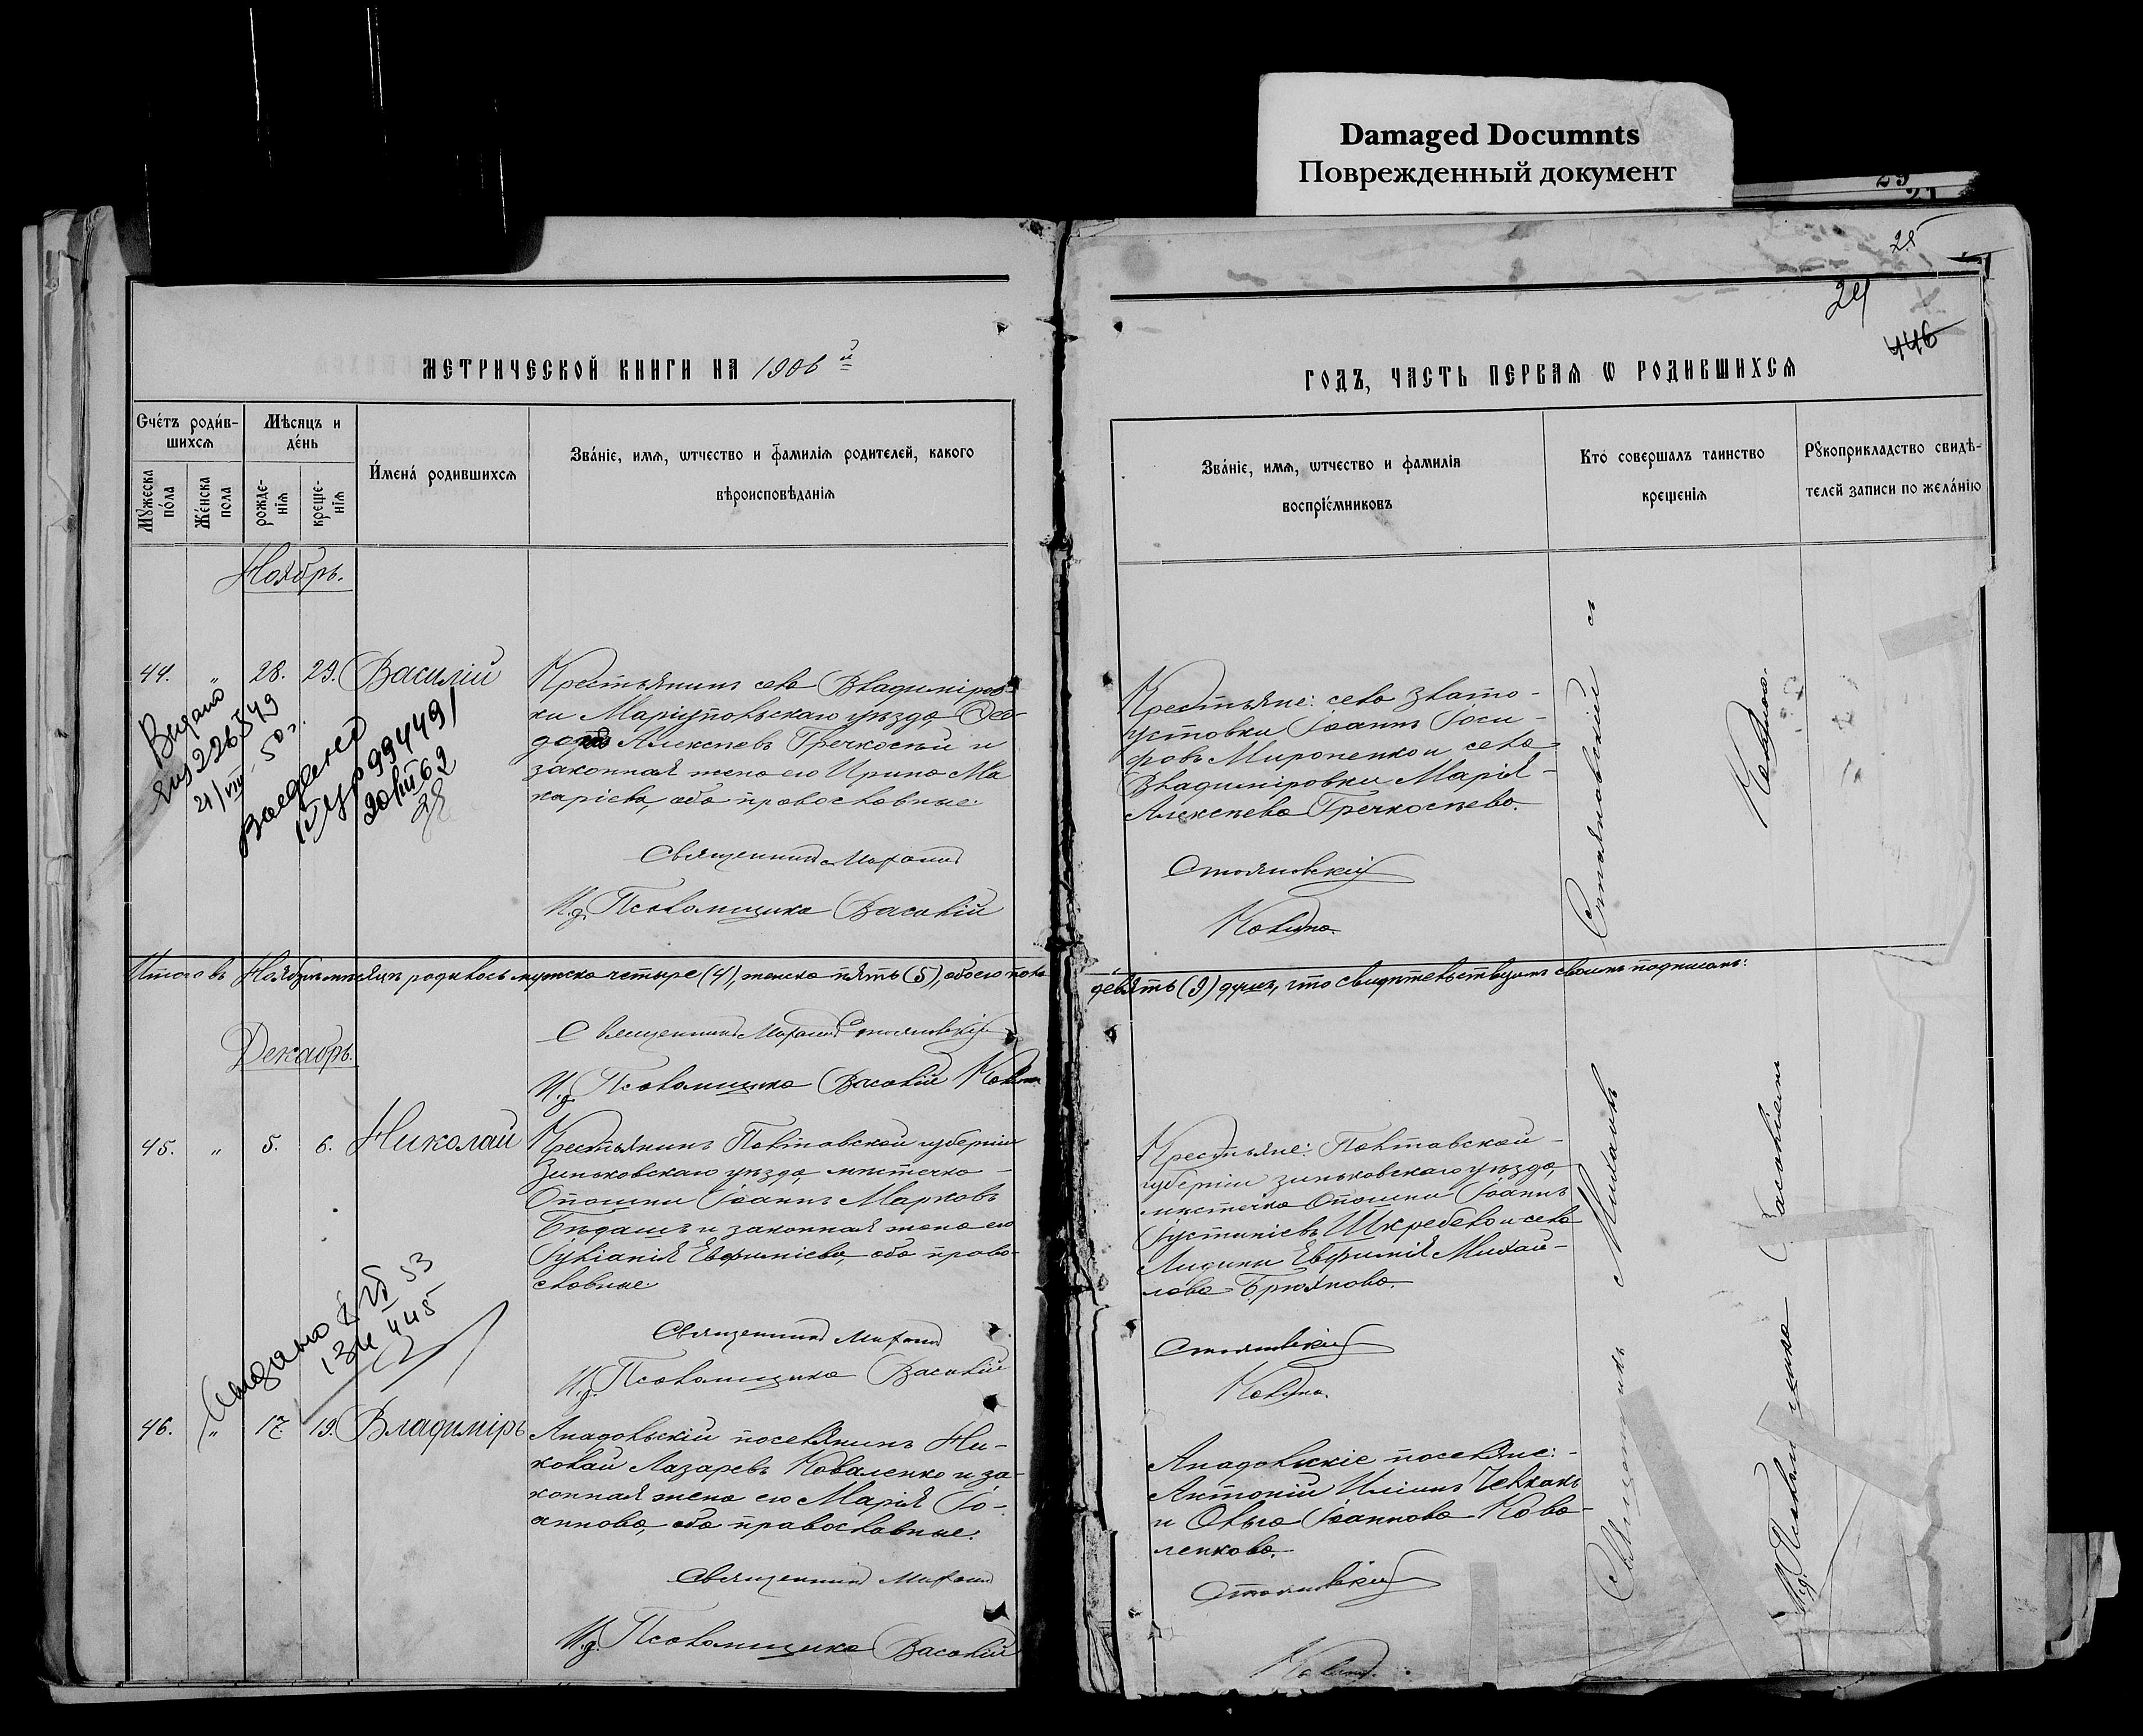 Damaged Documnts
Поврежденный документ
25
24
446
МЕТРИЧЕСКОЙ КНИГИ НА 1906 й
ГОДЪ, ЧАСТЬ ПЕРВАЯ Ѡ РОДИВШИХСЯ
Счетъ родив-
шихся
Мужеска пола
Женска пола
Мѣсяцъ и день
рожде-
нія
креще-
нія
Имена родившихся
Званіе, имя, ѡтчество и фамилія родителей, какого
вѣроисповѣданія
Званіе, имя, ѡтчество и фамилія
воспріемниковъ
Кто совершалъ таинство
крещенія
Рукоприкладство свидѣ-
телей записи по желанію
Ноябрь.
44. " 28. 29. Василій
Крестьянинъ села Владиміров-
ки Маріупольскаго уѣзда, Ѳео-
Алексѣевъ Гречкосѣй и
законная жена его Ирина Ма
каріева, оба православные.
Священникъ Михаилъ
И.д. Псаломщика Василій
Крестьяне: села Злато-
устовки Іоаннъ Іоси-
фовъ Мироненко и села
Владиміровки Марія
Алексѣева Гречкосѣева.
Стояновскій
Ковтра.
Выдано
21/VIII 50 г.
994491
20/III 69
Итого въ Ноябрѣ мѣсяцѣ родилось мужска четыре (4), женска пять (5), обоего пола
девять (9) душъ, что свидѣтельствуемъ своимъ подписомъ:
Священникъ Михаилъ Стояновскій
И.д. Псаломщика Василій
Декабрь.
45. " 5. 6. Николай
Крестьянинъ Полтавской губерніи
Зиньковскаго уѣзда, мѣстечка
Опошни Іоаннъ Марковъ
и законная жена его
Іуліанія Евфиміева, оба право-
славные.
Священникъ Михаилъ
И.д. Псаломщика Василій
Крестьяне: Полтавской
губерніи зиньковскаго уѣзда,
мѣстечка Опошни Іоаннъ
Іустиніевъ Шкребело и села
Лидини Евфимія Михай-
лова Брюхнова.
Стояновскій
134 445
46. " 17. 19. Владиміръ
Анадольскій поселянинъ Ни-
колай Лазаревъ Коваленко и за-
конная жена его Марія Іо-
аннова, оба православные.
Священникъ Михаилъ
И.д. Псаломщика Василій
Анадольскіе поселяне:
Антоній Ильинъ
и Ольга Іоаннова Кова-
ленкова.
Стояновскій
Священникъ Михаилъ Стояновскій съ
И.д. Псаломщика Василіемъ